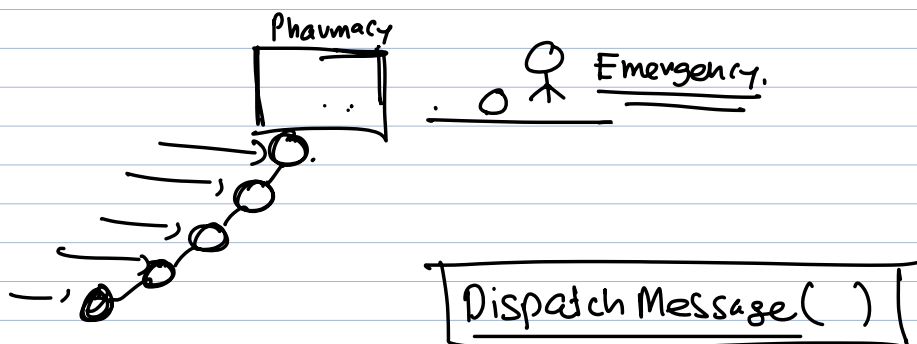 Pharmacy
Emergency.
Dispatch Message( )